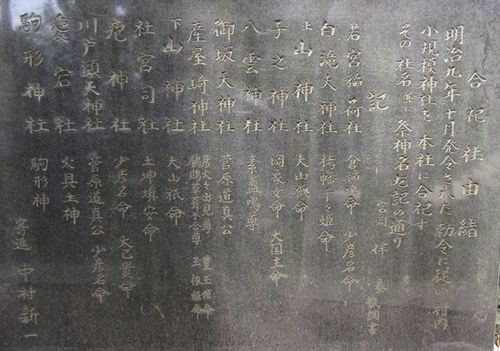 合祀社由緒
明治九年十月発令された勅令に従い村内
小規模神社を本社に合祀す
その社名並に祭神名左記の通り
記 宮司 伴
若宮稲荷社 倉稲魂命 少彦名命
白滝大神社 栲幡千々姫命
上山神社 大山祇命
子之神社 岡象女命 大国主命
八雲神社 素盞鳴尊
御坂天神社 菅原道真公
産屋﨑神社 彦火々出見尊 豊玉姫命
鵜鶿草葺不合尊 玉依姫命
下山神社 大山祇命
社宮司社 土埴安命
疱神社 少彦名命 大己貴命
川戸頭天神社 菅原道真公 少彦名命
愛宕社 火具土神
駒形神社 駒形神
寄進 中村新一